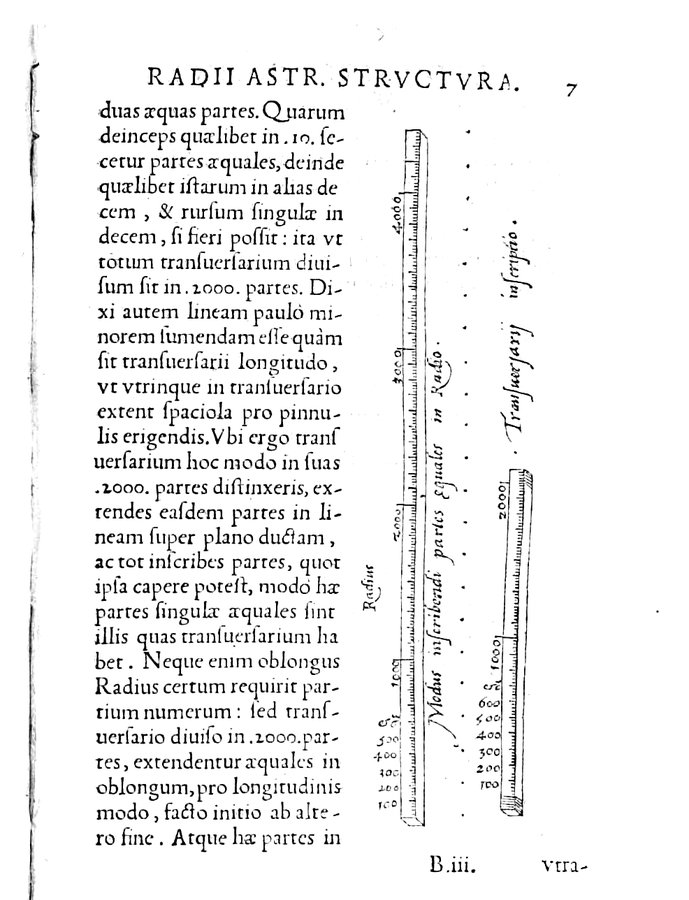 RADII ASTR. STRVCTVRA. 7
duas æquas partes. Quarum
deinceps quælibet in .10. ſe-
cetur partes æquales, deinde
quælibet iſtarum in alias de
cem , & rurſum ſingulæ in
decem , ſi fieri poſſit : ita vt
totum tranſuerſarium diui-
ſum ſit in .2000. partes. Di-
xi autem lineam paulò mi-
norem ſumendam eſſe quàm
ſit tranſuerſarii longitudo ,
vt vtrinque in tranſuerſario
extent ſpaciola pro pinnu-
lis erigendis. Vbi ergo tranſ
uerſarium hoc modo in ſuas
.2000. partes diſtinxeris, ex-
tendes eaſdem partes in li-
neam ſuper plano ductam ,
ac tot inſcribes partes, quot
ipſa capere poteſt, modò hæ
partes ſingulæ æquales ſint
illis quas tranſuerſarium ha
bet . Neque enim oblongus
Radius certum requirit par-
tium numerum : ſed tranſ-
uerſario diuiſo in .2000. par-
tes, extendentur æquales in
oblongum, pro longitudinis
modo , facto initio ab alte-
ro fine . Atque hæ partes in
Radius
4000
3000
2000
1000
&c
500
400
300
200
100
Modus inſcribendi partes equales in Radio .
Tranſuerſarij inſcriptio .
2000
1000
&c
600
500
400
300
200
100
B.iii. vtra-